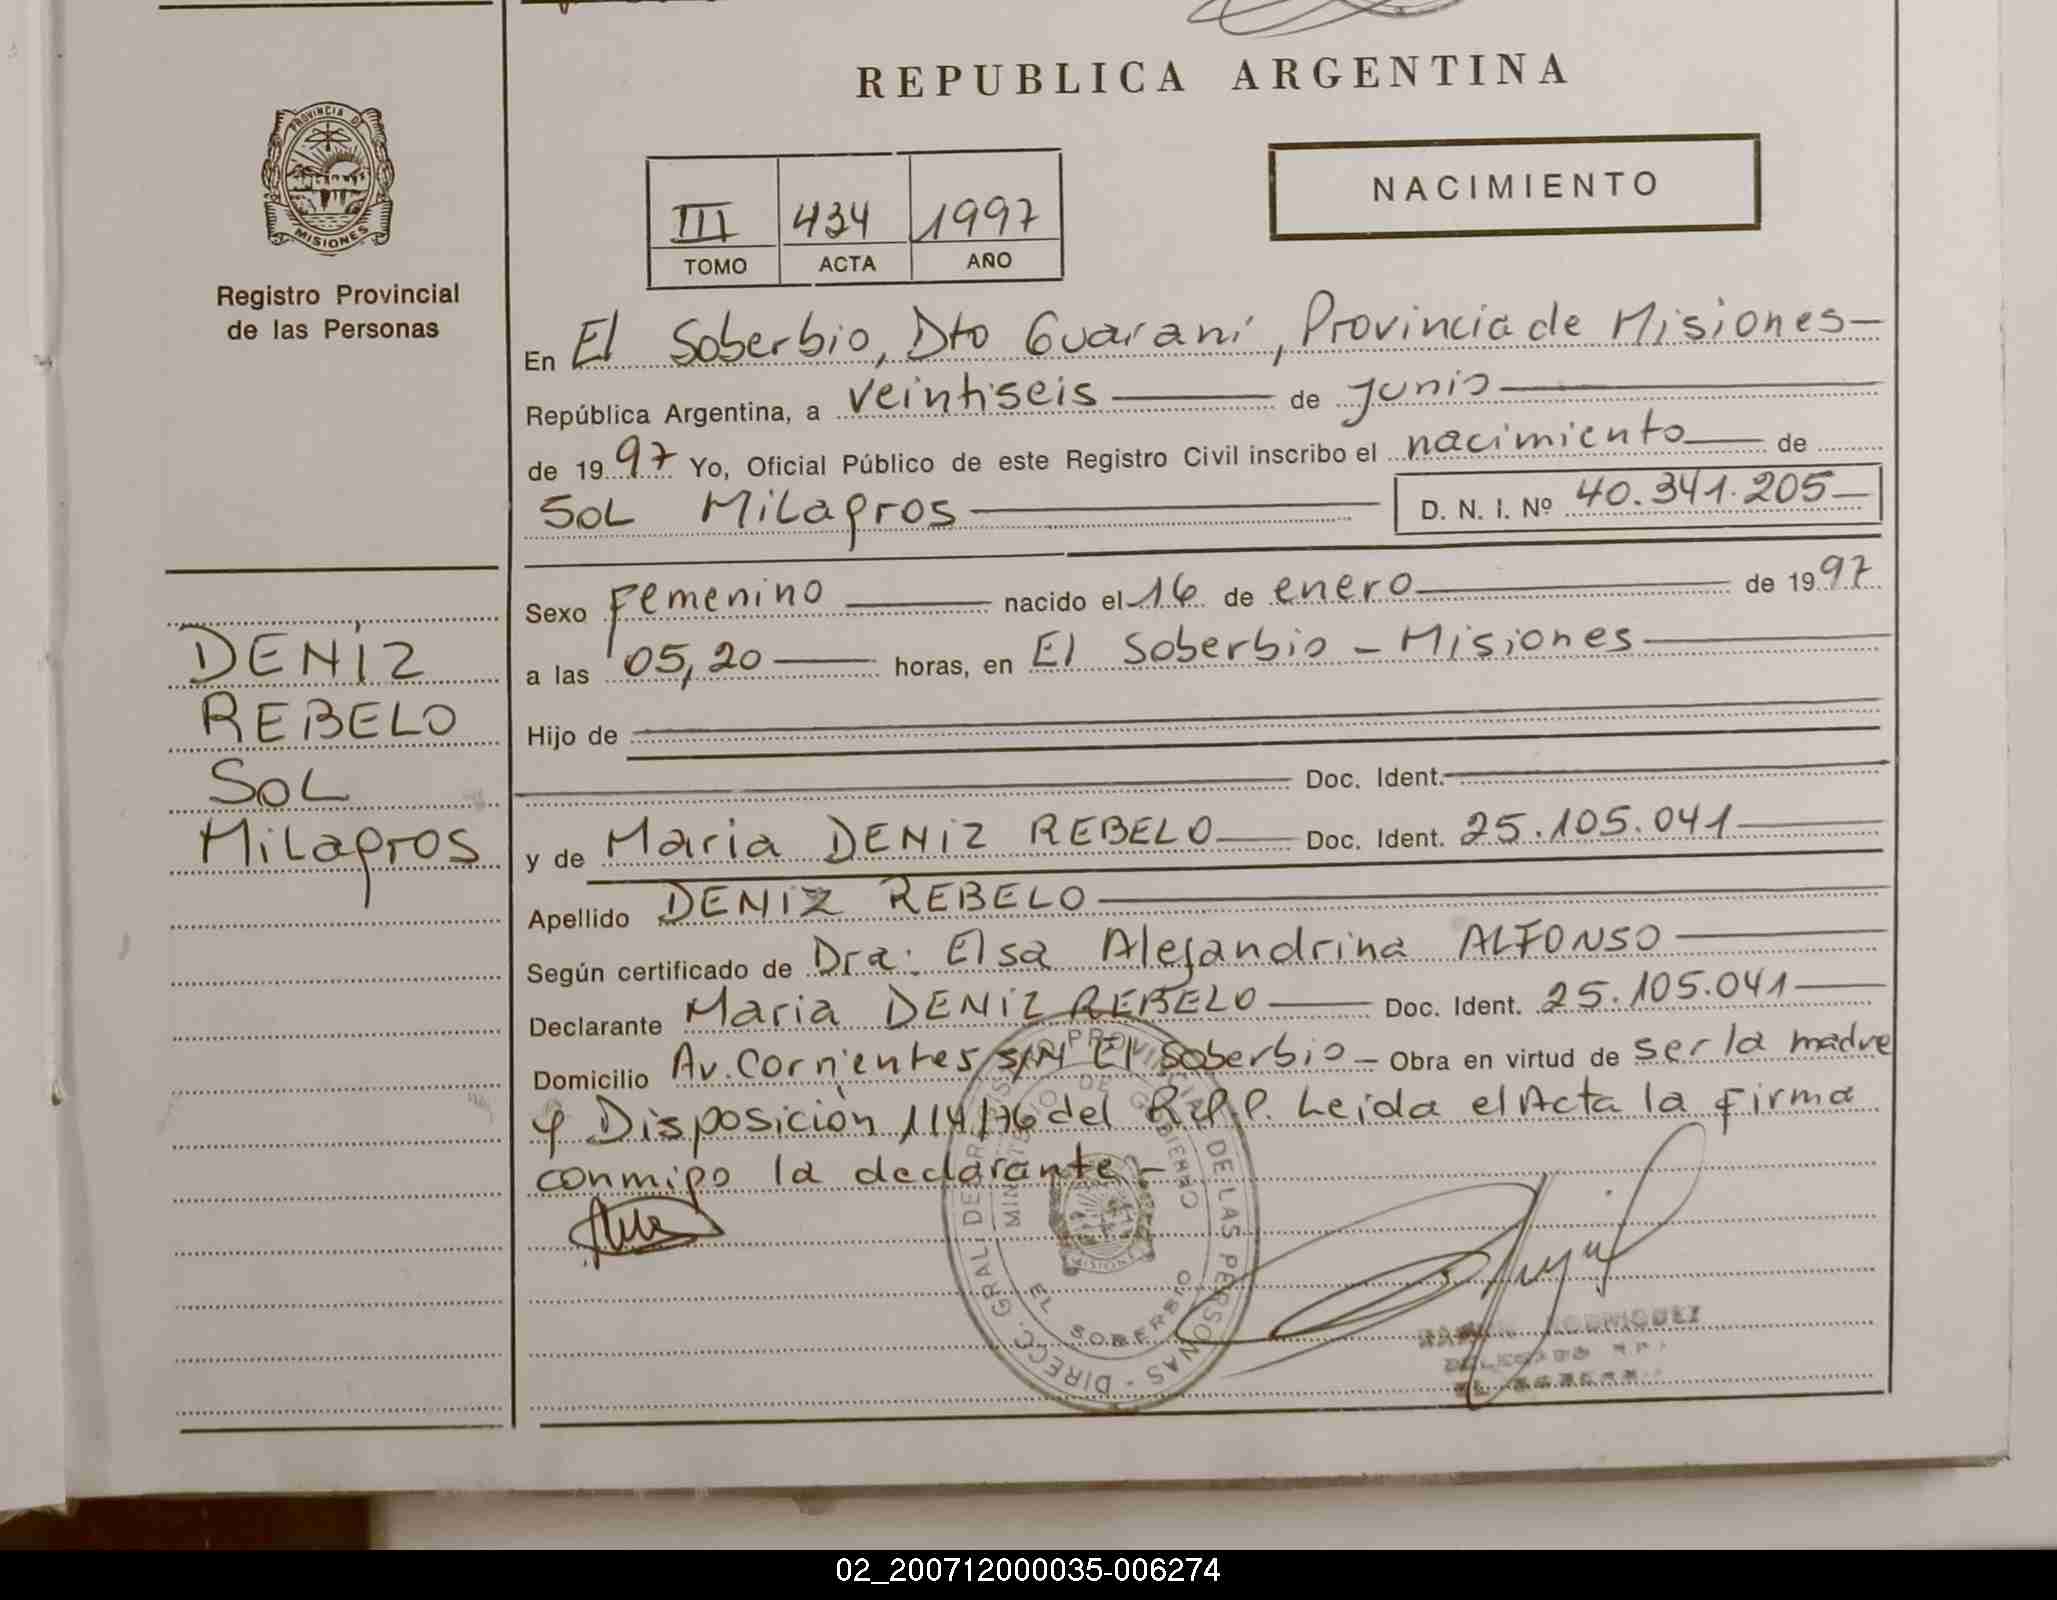 REPUBLICA ARGENTINA
PROVINCIA DE
MISIONES
Registro Provincial
de las Personas
NACIMIENTO
III 434 1997
TOMO ACTA AÑO
En El Soberbio, Dto Guaraní, Provincia de Misiones—
República Argentina, a veintiseis — de junio —
de 1997 Yo, Oficial Público de este Registro Civil inscribo el nacimiento — de
SOL Milagros —
D. N. I. Nº 40.341.205—
Sexo Femenino — nacido el 16 de enero — de 1997
a las 05,20 — horas, en El Soberbio - Misiones —
Hijo de
Doc. Ident.
y de Maria DENIZ REBELO — Doc. Ident. 25.105.041 —
Apellido DENIZ REBELO —
Según certificado de Dra: Elsa Alejandrina ALFONSO —
Declarante Maria DENIZ REBELO — Doc. Ident. 25.105.041 —
Domicilio Av. Corrientes S/N El Soberbio - Obra en virtud de ser la madre
y Disposición 114/76 del R.P.P. Leida el Acta la firma
conmigo la declarante.-
DENIZ
REBELO
SOL
Milagros
DIRECC. GRAL. DE PROVINCIAL DE LAS PERSONAS
MINISTERIO DE GOBIERNO
MISIONES
EL SOBERBIO
RODRIGUEZ
02_200712000035-006274